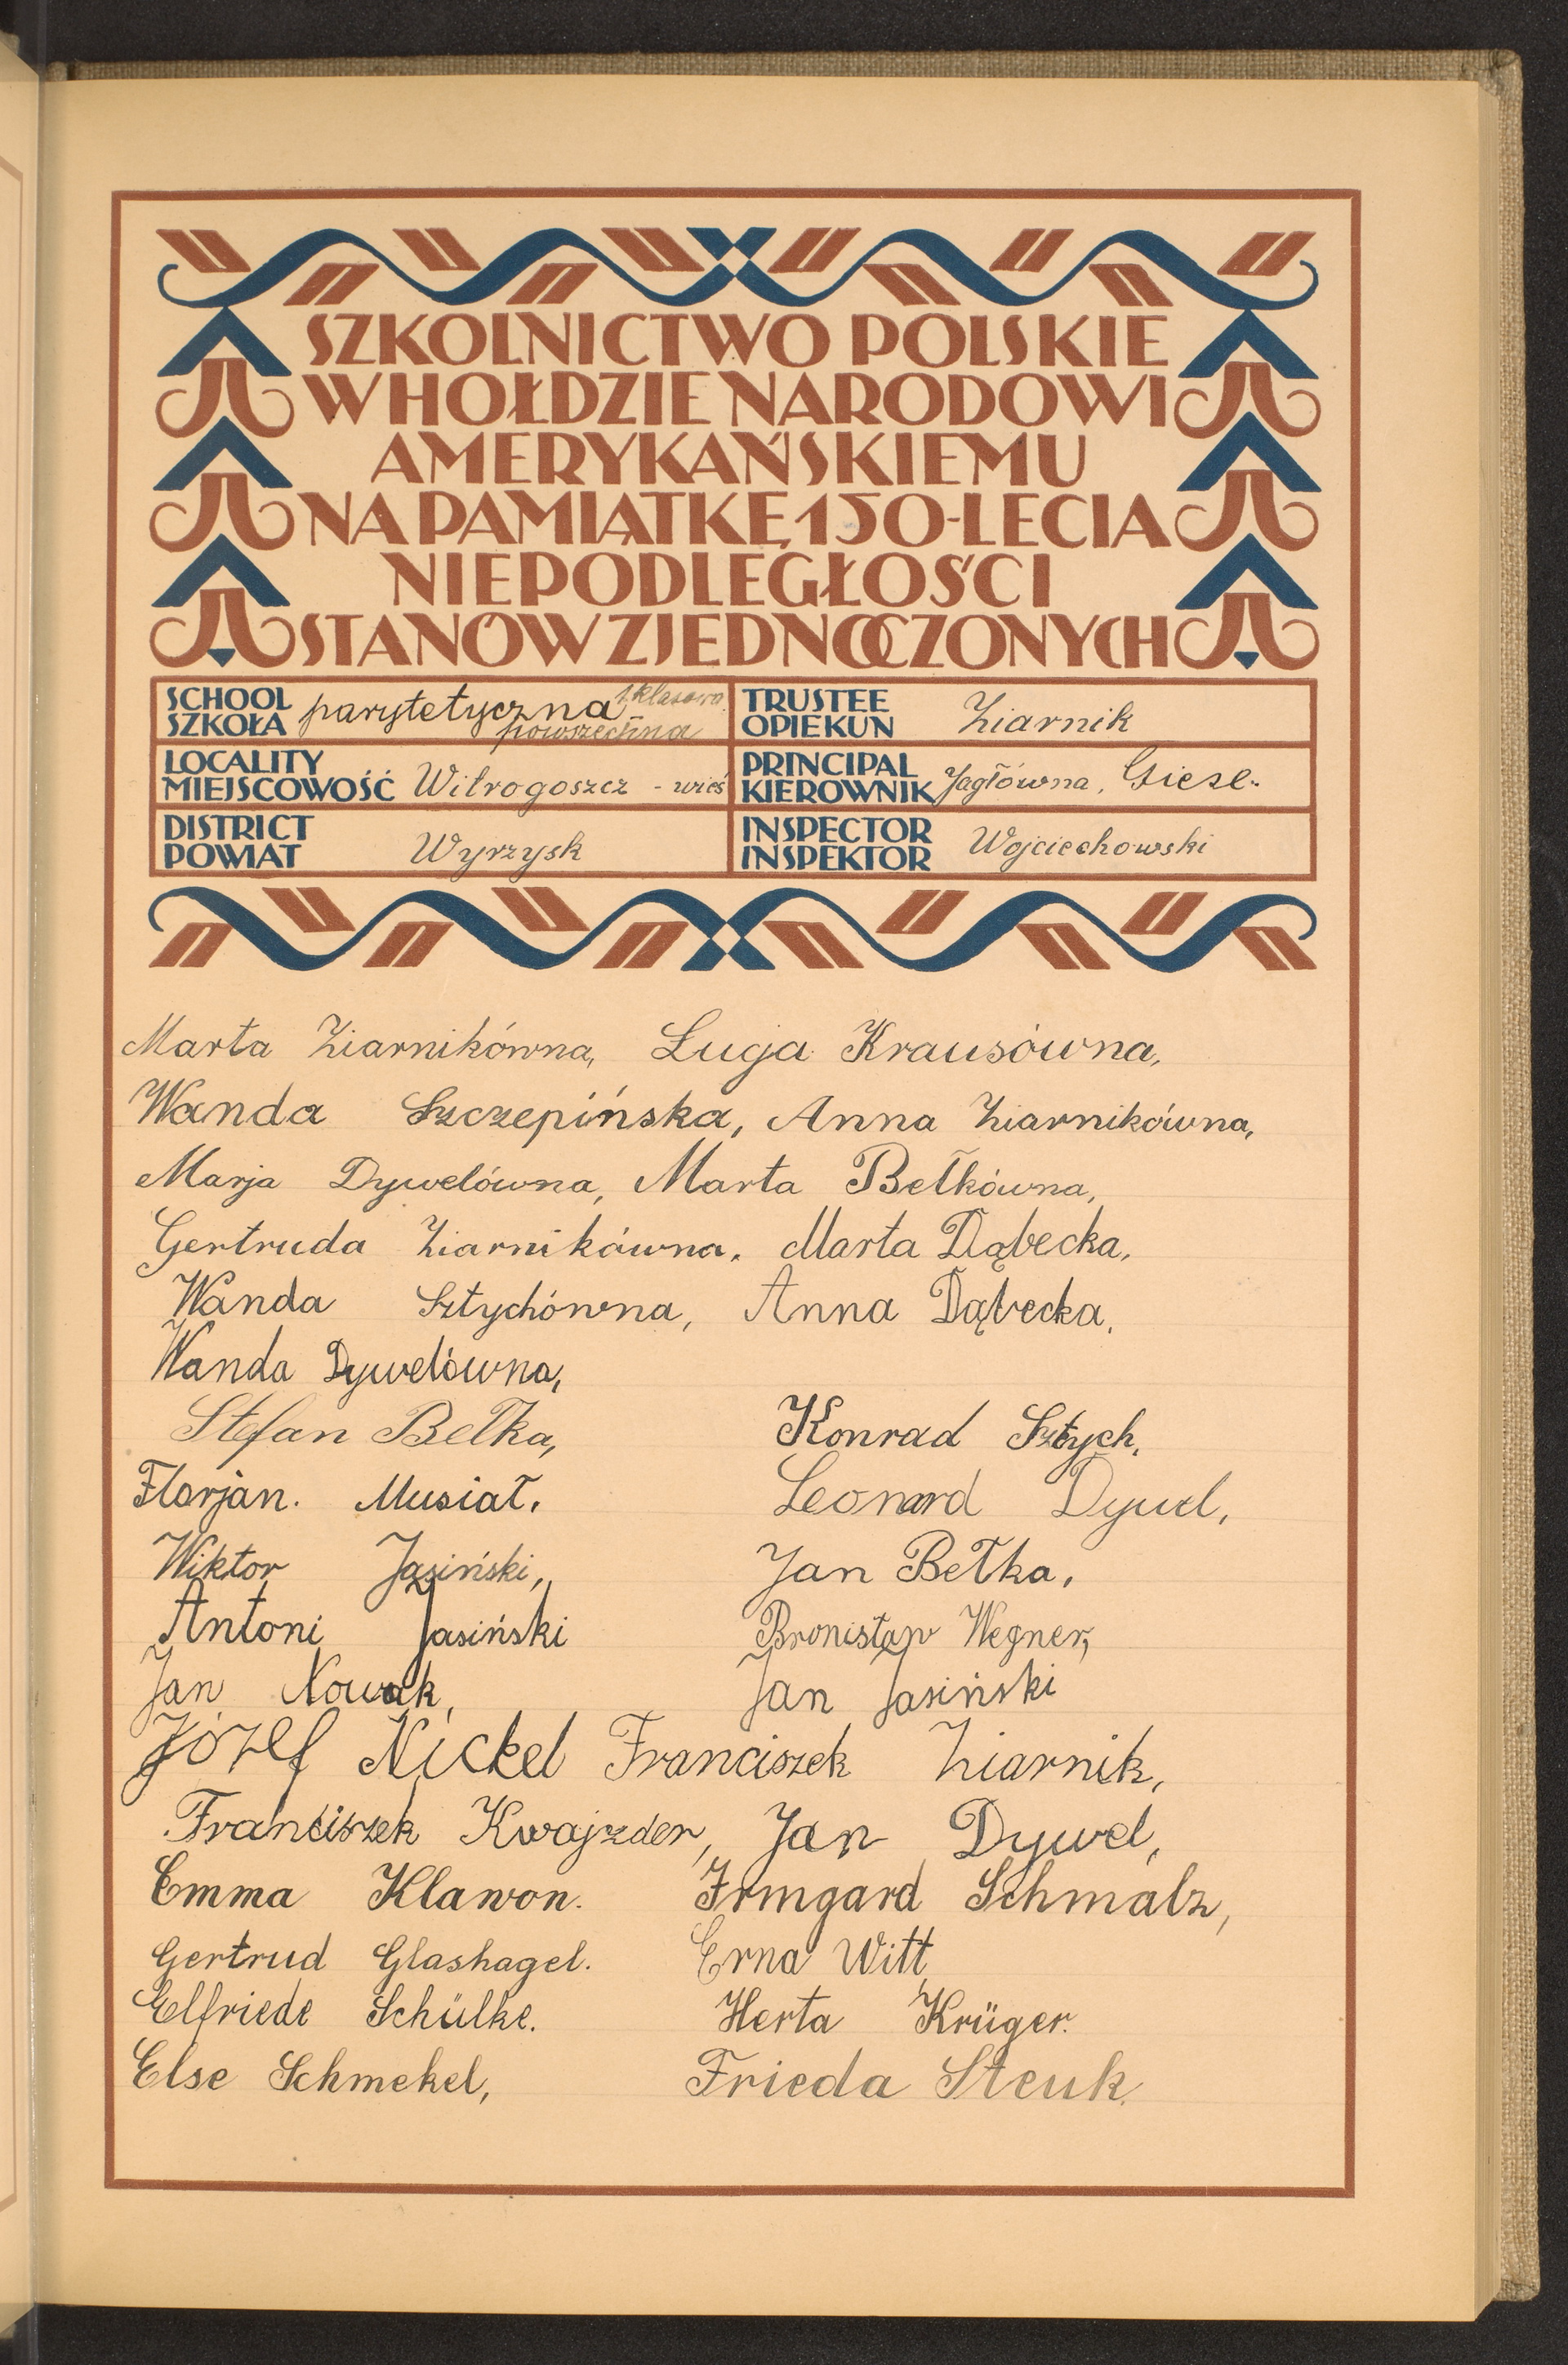 SZKOLNICTWO POLSKIE
W HOŁDZIE NARODOWI
AMERYKAŃSKIEMU
NA PAMIĄTKĘ 150-LECIA
NIEPODLEGŁOŚCI
STANÓW ZJEDNOCZONYCH
SCHOOL
SZKOŁA parytetyczna 1 klasowa
powszechna
TRUSTEE
OPIEKUN Ziarnik
LOCALITY
MIEJSCOWOŚĆ Witrogoszcz - wieś
PRINCIPAL
KIEROWNIK Jagłówna, Giese.
DISTRICT
POWIAT Wyrzysk
INSPECTOR
INSPEKTOR Wojciechowski
Marta Ziarnikówna, Luja Krausówna,
Wanda Szczepińska, Anna Ziarnikówna,
Marja Dywelówna, Marta Bełkówna,
Gertruda Ziarnikówna, Marta Dąbecka,
Wanda Sztychówna, Anna Dąbecka,
Wanda Dywelówna,
Stefan Bełka, Konrad Sztych,
Florjan. Musiał, Leonard Dywel,
Wiktor Jasiński, Jan Bełka,
Antoni Jasiński Bronisław Wegner,
Jan Nowak, Jan Jasiński
Józef Nickel Franciszek Ziarnik,
Franciszek Kwajzder, Jan Dywel,
Emma Klawon. Irmgard Schmalz,
Gertrud Glashagel. Erna Witt,
Elfriede Schülke. Herta Krüger.
Else Schmekel, Frieda Steuk.